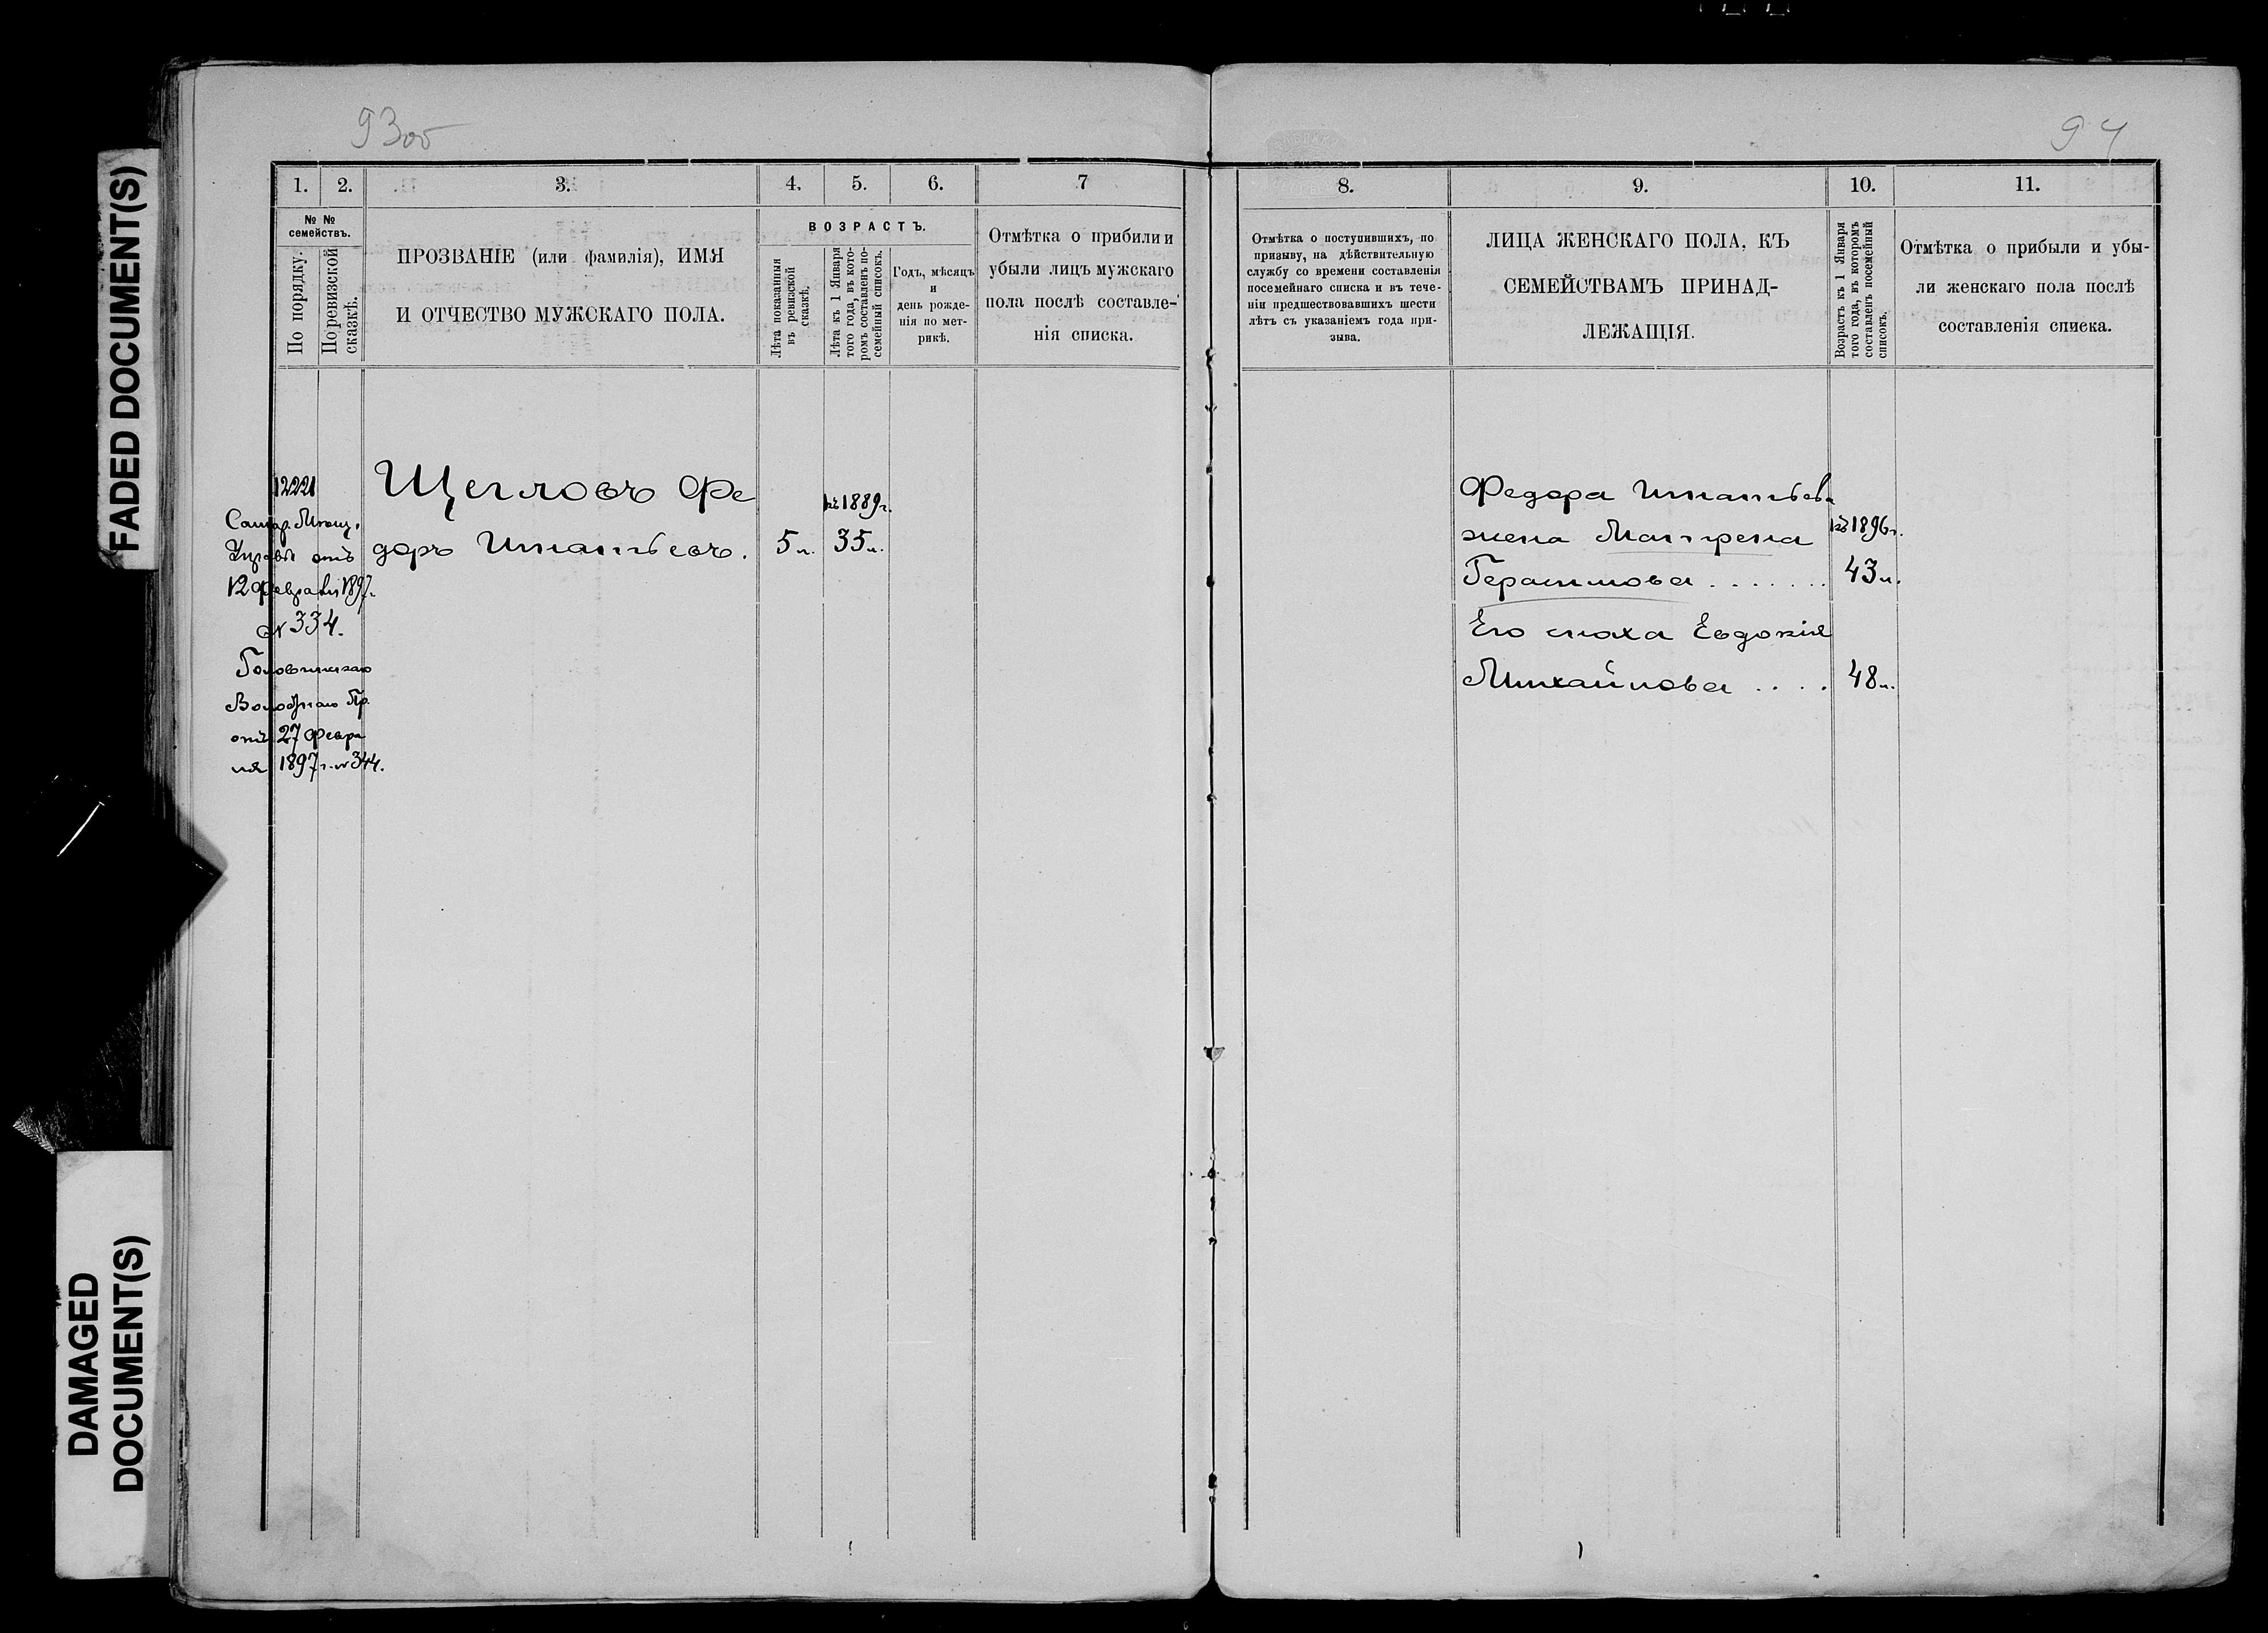 FADED DOCUMENT(S)
DAMAGED
DOCUMENT(S)
93об
1. 2. 3. 4. 5. 6. 7
№ №
семействъ.
По порядку.
По ревизской
сказкѣ.
ПРОЗВАНІЕ (или фамилія), ИМЯ
И ОТЧЕСТВО МУЖСКАГО ПОЛА.
ВОЗРАСТЪ.
Лѣта показанныя
въ ревизской
сказкѣ.
Лѣта къ 1 Января
того года, въ кото-
ромъ составленъ по-
семейный списокъ.
Годъ, мѣсяцъ
и
день рожде-
нія по мет-
рикѣ.
Отмѣтка о прибыли и
убыли лицъ мужскаго
пола послѣ составле-
нія списка.
12221
Самар. Мѣщ.
Управы отъ
12 февраля 1897 г.
№ 334.
Головинскаго
Волостнаго Пр.
отъ 27 февра
ля 1897 г. № 344.
Щегловъ Фе
доръ Игнатьевъ.
5 л.
къ 1889 г.
35 л.
94
8. 9. 10. 11.
Отмѣтка о поступившихъ, по
призыву, на дѣйствительную
службу со времени составленія
посемейнаго списка и въ тече-
ніи предшествовавшихъ шести
лѣтъ съ указаніемъ года при-
зыва.
ЛИЦА ЖЕНСКАГО ПОЛА, КЪ
СЕМЕЙСТВАМЪ ПРИНАД-
ЛЕЖАЩІЯ.
Возрастъ къ 1 Января
того года, въ которомъ
составленъ посемейный
списокъ.
Отмѣтка о прибыли и убы-
ли женскаго пола послѣ
составленія списка.
Федора Игнатьева
жена Матрена
къ 1896 г.
Герасимова . . . . . . . 43 л.
Его сноха Евдокія
Михайлова . . . . 48 л.